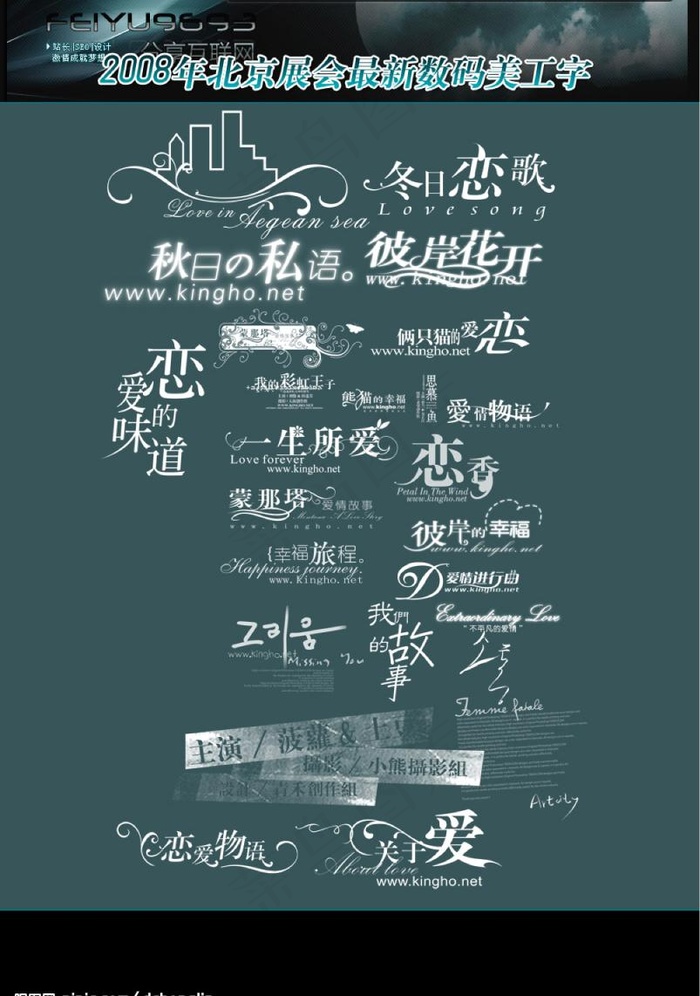 FEIYU9693
站长|SEO|设计
激情成就梦想
分享互联网
2008年北京展会最新数码美工字
Love in Aegean sea
冬日恋歌
Love song
秋日の私语。
www.kingho.net
彼岸花开
www.kingho.net
蒙那塔
俩只猫的爱恋
www.kingho.net
恋爱的味道
我的彩虹王子
熊猫的幸福
www.kingho.net
思慕一鱼
爱情物语
www.kingho.net
一生所爱
Love forever
www.kingho.net
恋香
Petal In The Wind
www.kingho.net
蒙那塔
爱情故事
www.kingho.net
彼岸的幸福
www.kingho.net
{幸福旅程。
Happiness journey.
www.kingho.net
D爱情进行曲
www.kingho.net
그리움
www.kingho.net
Missing You
我們的故事
Extraordinary Love
"不平凡的爱情"
Femme fatale
主演 / 菠蘿 & 土豆
攝影 / 小熊攝影組
設計 / 青禾創作組
恋爱物语
关于爱
About love
www.kingho.net